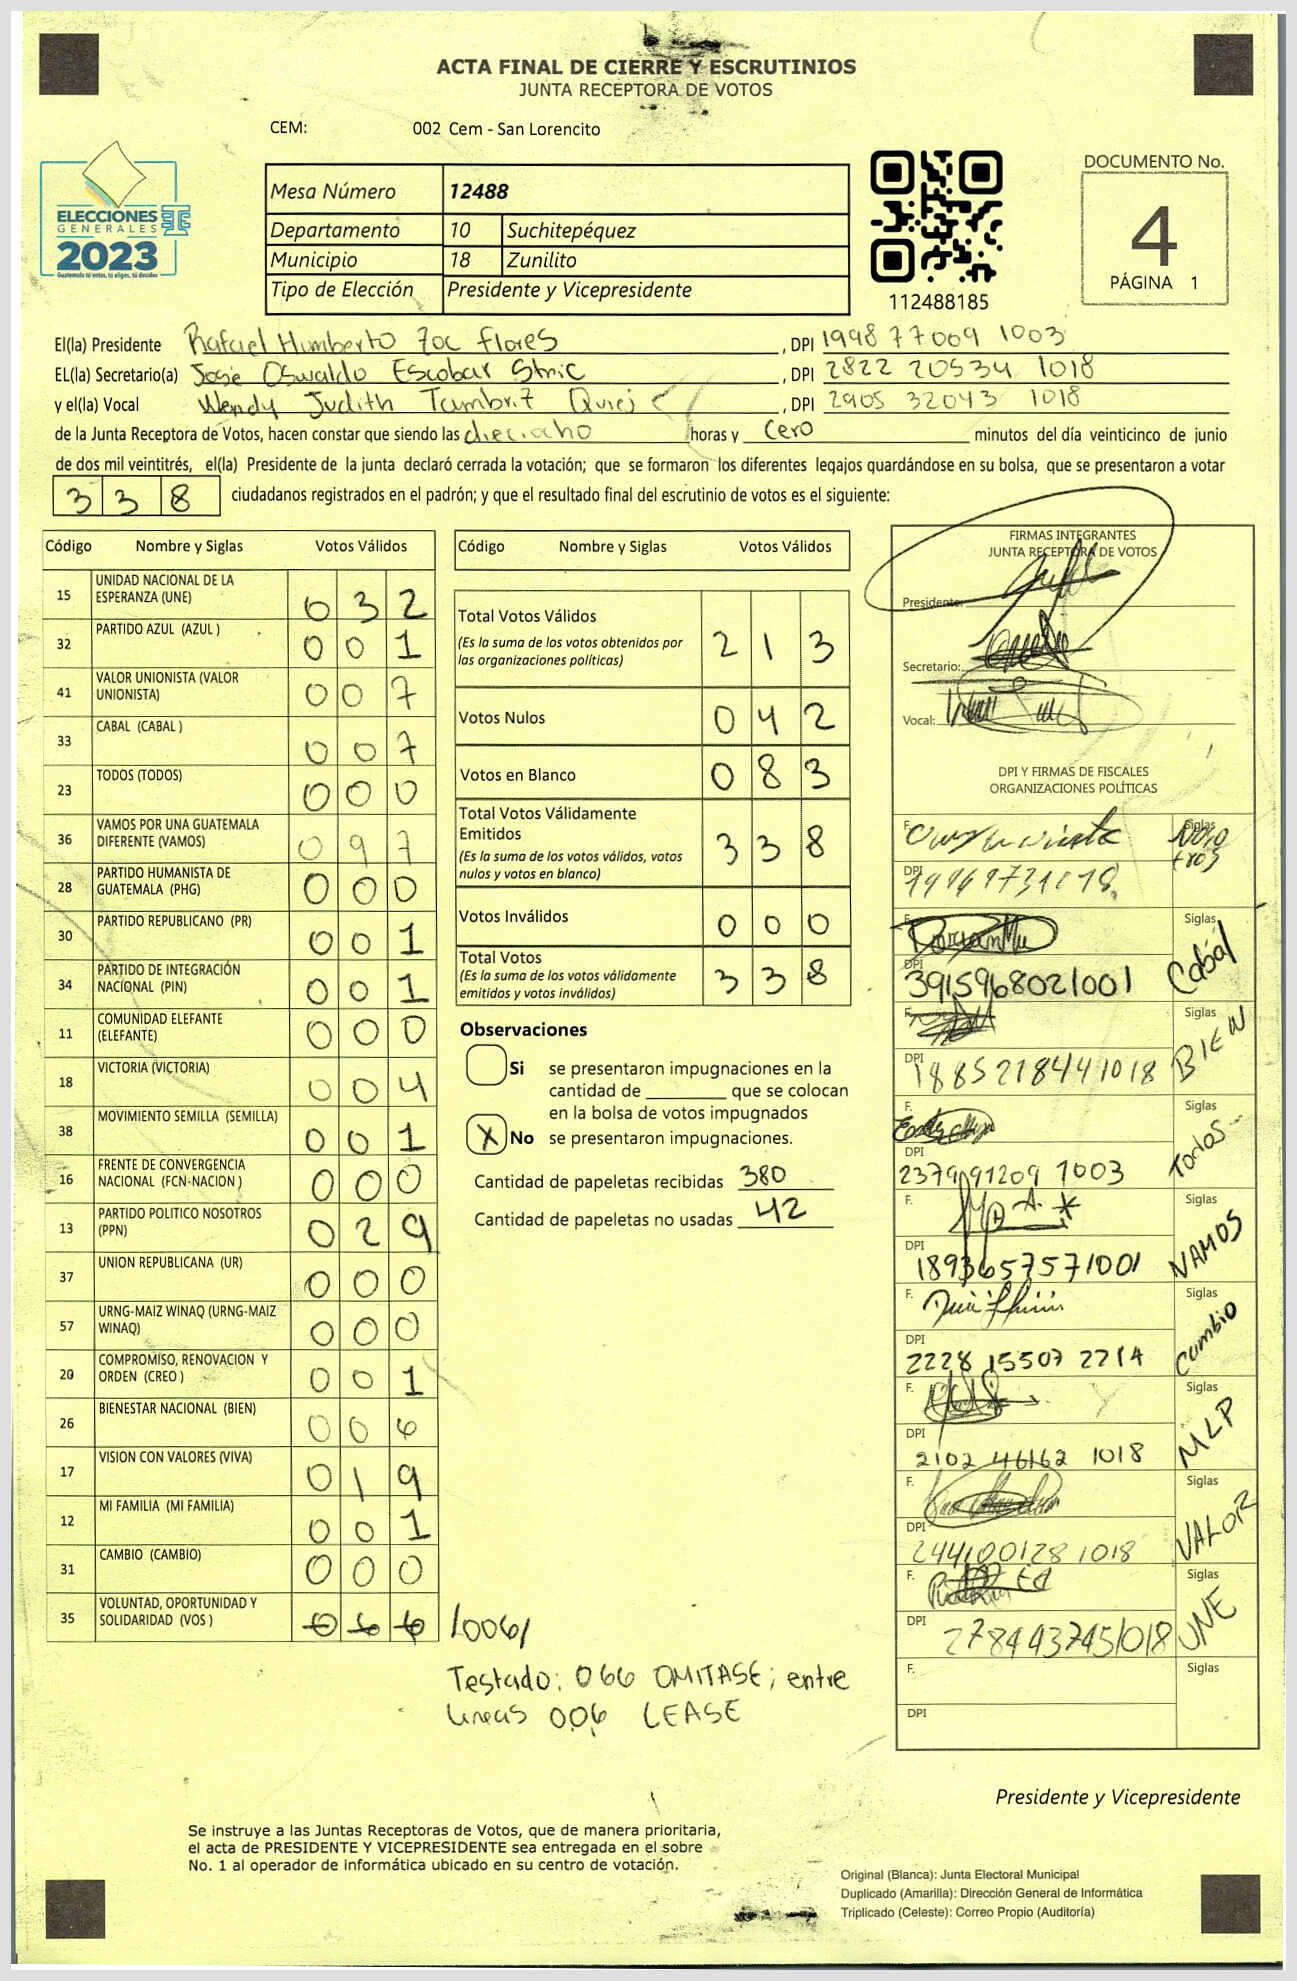 ACTA FINAL DE CIERRE Y ESCRUTINIOS
JUNTA RECEPTORA DE VOTOS
CEM: 002 Cem - San Lorencito
ELECCIONES
GENERALES
2023
Guatemala tú votas, tú eliges, tú decides
Mesa Número 12488
Departamento 10 Suchitepéquez
Municipio 18 Zunilito
Tipo de Elección Presidente y Vicepresidente
112488185
DOCUMENTO No.
4
PÁGINA 1
El(la) Presidente Rafael Humberto Zoc Flores , DPI 1998 77009 1003
EL(la) Secretario(a) José Oswaldo Escobar , DPI 2822 20534 1018
y el(la) Vocal Wendy Judith , DPI 2905 32043 1018
de la Junta Receptora de Votos, hacen constar que siendo las dieciocho horas y cero minutos del día veinticinco de junio
de dos mil veintitrés, el(la) Presidente de la junta declaró cerrada la votación; que se formaron los diferentes legajos guardándose en su bolsa, que se presentaron a votar
338 ciudadanos registrados en el padrón; y que el resultado final del escrutinio de votos es el siguiente:
Código Nombre y Siglas Votos Válidos
15 UNIDAD NACIONAL DE LA ESPERANZA (UNE) 032
32 PARTIDO AZUL (AZUL ) 001
41 VALOR UNIONISTA (VALOR UNIONISTA) 007
33 CABAL (CABAL ) 007
23 TODOS (TODOS) 000
36 VAMOS POR UNA GUATEMALA DIFERENTE (VAMOS) 097
28 PARTIDO HUMANISTA DE GUATEMALA (PHG) 000
30 PARTIDO REPUBLICANO (PR) 001
34 PARTIDO DE INTEGRACIÓN NACIONAL (PIN) 001
11 COMUNIDAD ELEFANTE (ELEFANTE) 000
18 VICTORIA (VICTORIA) 004
38 MOVIMIENTO SEMILLA (SEMILLA) 001
16 FRENTE DE CONVERGENCIA NACIONAL (FCN-NACION ) 000
13 PARTIDO POLITICO NOSOTROS (PPN) 029
37 UNION REPUBLICANA (UR) 000
57 URNG-MAIZ WINAQ (URNG-MAIZ WINAQ) 000
20 COMPROMISO, RENOVACION Y ORDEN (CREO ) 001
26 BIENESTAR NACIONAL (BIEN) 006
17 VISION CON VALORES (VIVA) 019
12 MI FAMILIA (MI FAMILIA) 001
31 CAMBIO (CAMBIO) 000
35 VOLUNTAD, OPORTUNIDAD Y SOLIDARIDAD (VOS ) 066 /006/
Testado: 066 OMITASE; entre
lineas 006 LEASE
Código Nombre y Siglas Votos Válidos
Total Votos Válidos 213
(Es la suma de los votos obtenidos por
las organizaciones políticas)
Votos Nulos 042
Votos en Blanco 083
Total Votos Válidamente
Emitidos 338
(Es la suma de los votos válidos, votos
nulos y votos en blanco)
Votos Inválidos 000
Total Votos 338
(Es la suma de los votos válidamente
emitidos y votos inválidos)
Observaciones
Si se presentaron impugnaciones en la
cantidad de ________ que se colocan
en la bolsa de votos impugnados
X No se presentaron impugnaciones.
Cantidad de papeletas recibidas 380
Cantidad de papeletas no usadas 42
FIRMAS INTEGRANTES
JUNTA RECEPTORA DE VOTOS
Presidente:
Secretario:
Vocal:
DPI Y FIRMAS DE FISCALES
ORGANIZACIONES POLÍTICAS
F. Siglas Nosotros
DPI
F. Siglas Cabal
DPI 3915968021001
F. Siglas BIEN
DPI 1885218441018
F. Siglas Todos
DPI 2379091209 1003
F. Siglas VAMOS
DPI 1893657571001
F. Siglas Cambio
DPI 2228 15507 2714
F. Siglas MLP
DPI 2102 46162 1018
F. Siglas VALOR
DPI 244100128 1018
F. Siglas UNE
DPI 2784437451018
F. Siglas
DPI
Presidente y Vicepresidente
Se instruye a las Juntas Receptoras de Votos, que de manera prioritaria,
el acta de PRESIDENTE Y VICEPRESIDENTE sea entregada en el sobre
No. 1 al operador de informática ubicado en su centro de votación.
Original (Blanca): Junta Electoral Municipal
Duplicado (Amarilla): Dirección General de Informática
Triplicado (Celeste): Correo Propio (Auditoría)